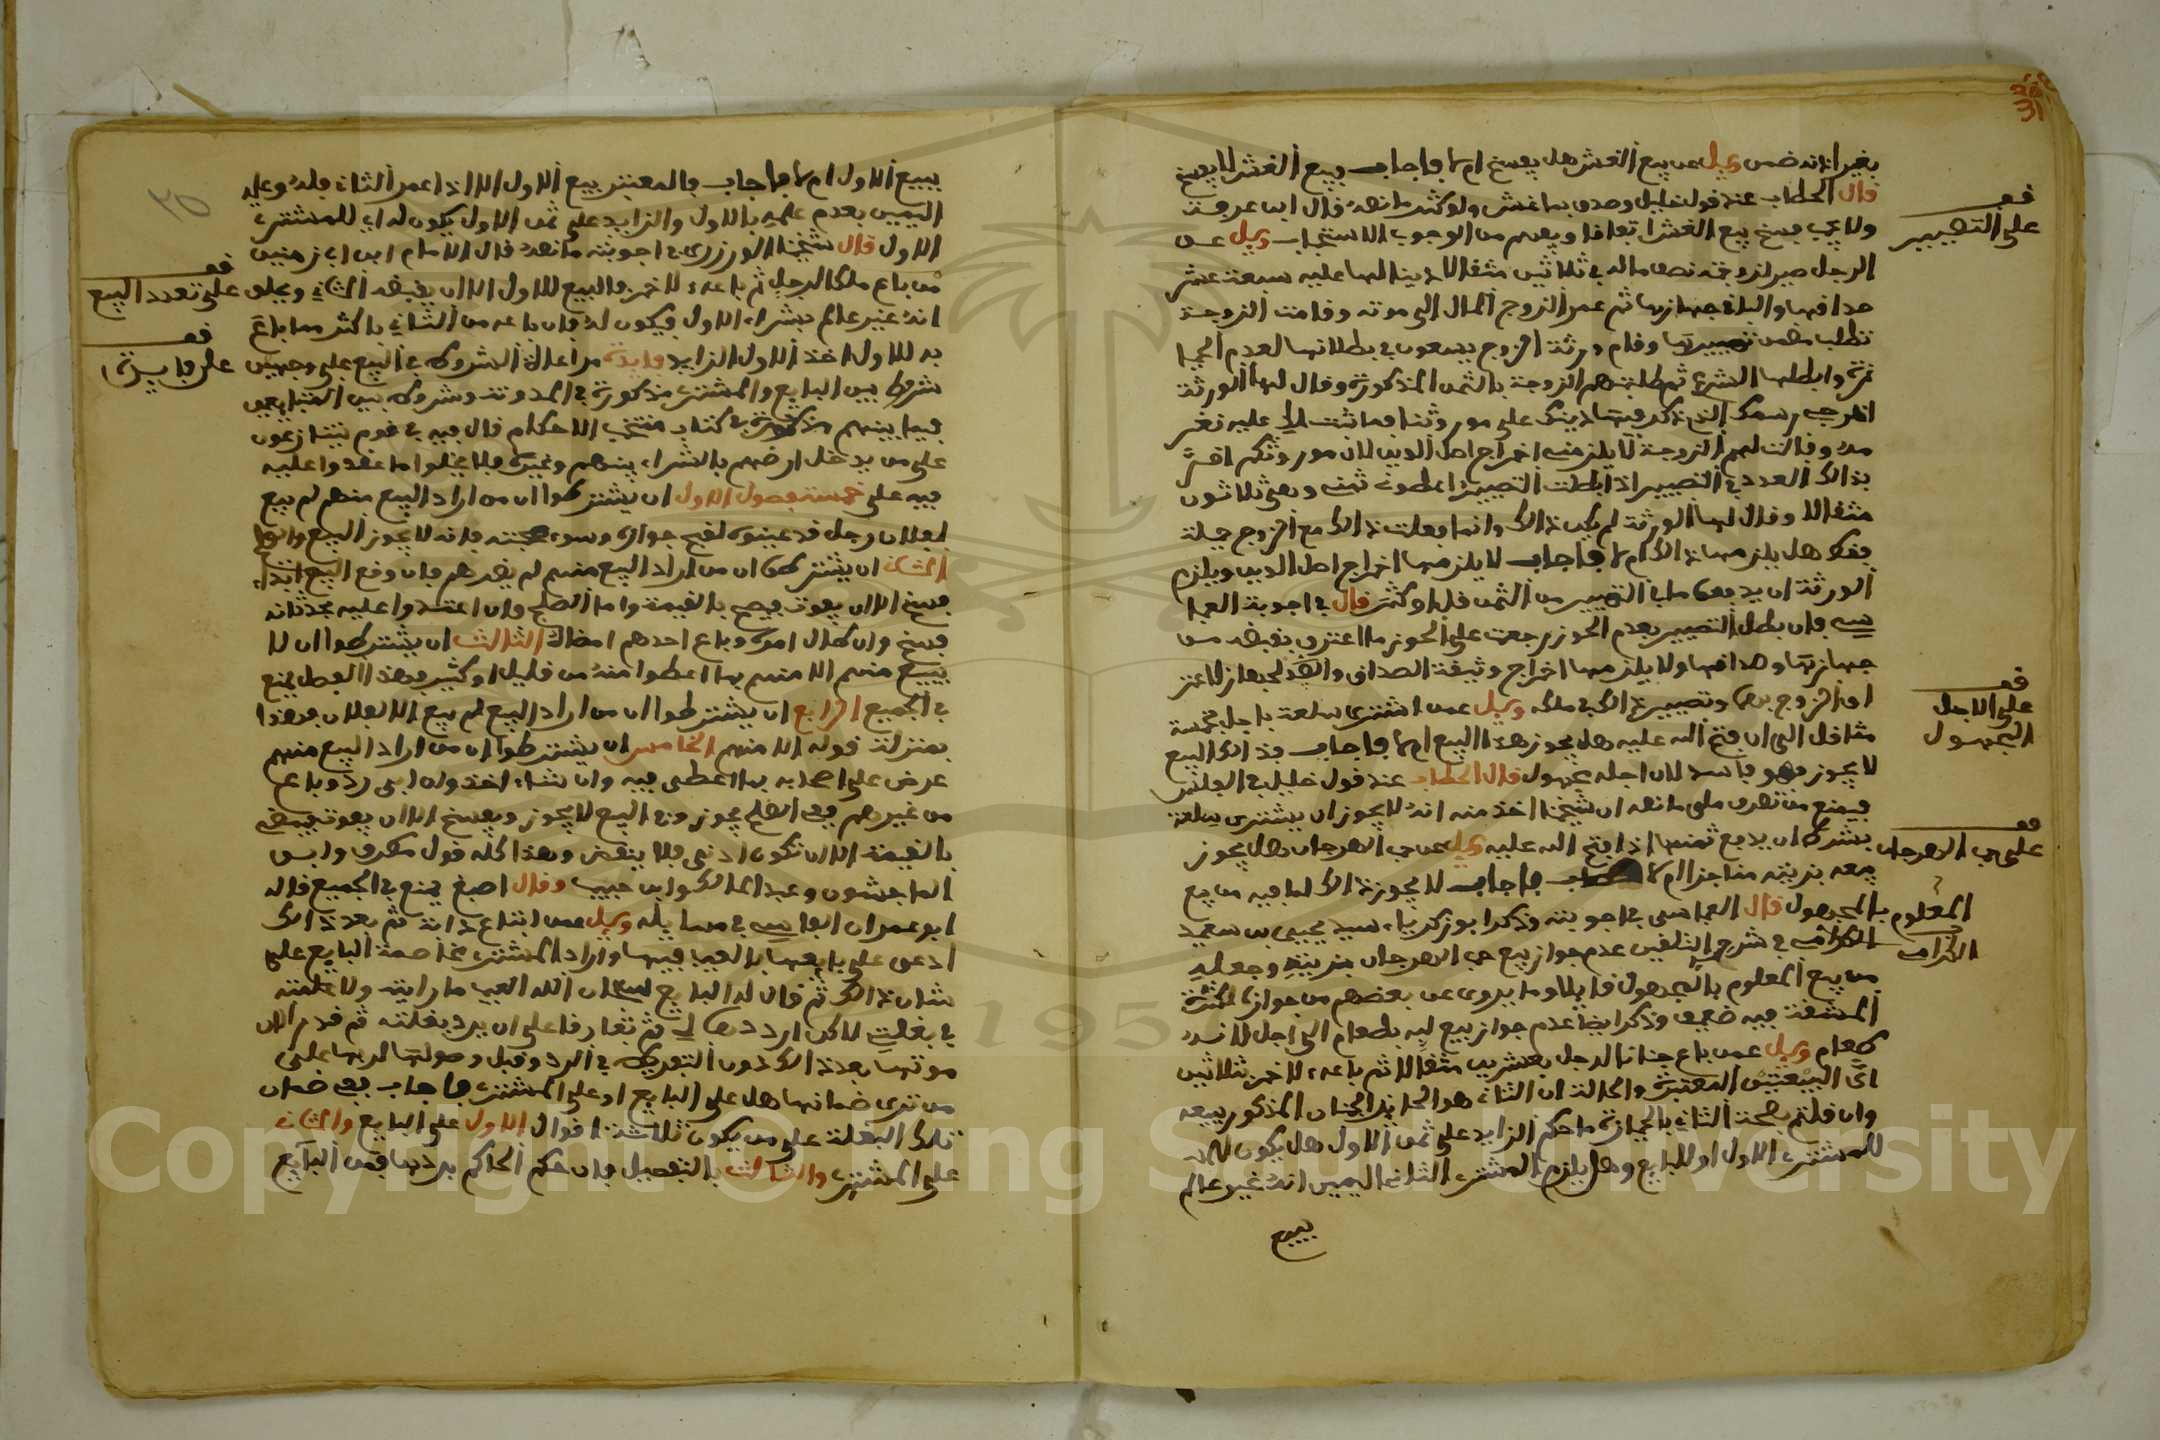 بغير اذنه ضمن وسيل عن بيع الغش هل يفسخ ام لا فاجاب بيع الغش لا يفسخ
قال الحطاب عند قول خليل وصدق بما غش ولو كثر ما نصه قال ابن عرفة
ولا يجب فسخ بيع الغش اتفاقا ويفهم من الوجوب الاستحباب وسيل عن
الرجل صير لزوجته نصف ماله في ثلاثين مثقالا دينا لها عليه سبعة عشر
صداقها والباقي جهازها ثم عمر الزوج المال الى موته وقامت الزوجة
تطلب تصييرها وقام ورثة الزوج يسعون في بطلانها لعدم الحيازة
وابطلها الشرع ثم طلبتهم الزوجة بالثمن المذكورة وقال لها الورثة
اخرجي رسمك الذي ذكر فيها دينك على موروثنا فما ثبت عليه
منه وقالت لهم الزوجة لا يلزمني اخراج اصل الدين لان موروثكم اقر
بذالك العدد في التصيير اذا بطلت التصيير اعطوني ثمنه وهي ثلاثون
مثقالا وقال لها الورثة لم يكن ذالك وانما فعلت ذالك مع الزوج حيلة
منك هل يلزمها ذالك ام لا فاجاب لا يلزمها اخراج اصل الدين ويلزم
الورثة ان يدفعوا ما في التصيير من الثمن قل او كثر قال في اجوبة
فان بطل التصيير بعدم الحوز رجعت على الحوز ما اعترف بقبضه من
جهازها وصداقها ولا يلزمها اخراج وثيقة الصداق والجهاز لاعتر
اف الزوج بهما وتصيير ذالك في ملكه وسيل عمن اشترى سلعة باجل بخمسة
مثاقل الى ان يفتح الله عليه هل يجوز هذا البيع ام لا فاجاب بذالك البيع
لا يجوز فهو فاسد لان اجله مجهول قال الحطاب عند قول خليل في الفلس
فيمنع من تصرف مالي ما نصه ان شيخنا اخذ منه انه لا يجوز ان يشتري سلعة
بشرط ان يدفع ثمنها اذا فتح الله عليه وسيل عن حب الهرجان هل يجوز
بيعه بزيته مناجزا ام لا فاجاب لا يجوز ذالك لما فيه من بيع
المعلوم بالمجهول قال العباسي في اجوبته وذكر ابو زكرياء سيدي يحيى بن سعيد
الكرامي في شرح التلقين عدم جواز بيع حب الهرجان بزيته وجعله
من بيع المعلوم بالمجهول قايلا وما يروى عن بعضهم من جوازه لكثرة
المشقة فيه ضعيف وذكر ايضا عدم جواز بيع لبه بطعام الى اجل لانه
طعام وسيل عمن باع جنانا لرجل بعشرين مثقالا ثم باعه لاخر بثلاثين
اي البيعتين المعتبرة والحالة ان الثاني هو الحايز للجنان المذكور بيعه
وان قلتم بصحة الثاني بالحيازة ما حكم الزايد على ثمن الاول هل يكون للمشتري
للمشتري الاول او للبايع وهل يلزم المشتري الثاني اليمين انه غير عالم
ببيع
فف على التصيير
فف على الاجل المجهول
فف على حب الهرجان
المعلوم
الكرامي
ببيع الاول ام لا فاجاب بالمعتبر بيع الاول الا اذا عمر الثاني فله وعليه
اليمين بعدم علمه بالاول والزايد على ثمن الاول يكون له اي للمشتري
الاول قال شيخنا الورزري في اجوبته ما نصه قال الامام ابن ابي زمنين
من باع ملكا لرجل ثم باعه لاخر فالبيع للاول الا ان يقبضه الثاني ويحلف
انه غير عالم بشراء الاول فيكون له فان باعه من الثاني باكثر مما باع
به للاول اخذ الاول الزايد فايدة مراعاة الشروط في البيع على وجهين
شرط بين البايع والمشتري مذكورة في المدونة وشروط بين المتبايعين
فيما بينهم مذكورة في كتاب منتخب الاحكام قال فيه في قوم يتنازعون
على من يدخل ارضهم بالشراء بينهم وغيره فلا يخلوا ما عقدوا عليه
فيه على خمسة فصول الاول ان يشترطوا ان من اراد البيع منهم لم يبع
لفلان رجل قد عينوه لقبح جواره وسوء صحبته فانه لا يجوز البيع
الثاني ان يشترطوا ان من اراد البيع منهم لم يبعه لهم فان وقع البيع ابدا
فسخ الا ان يفوت فيصح بالقيمة واما الصلح وان اعتدوا عليه بحدثانه
فسخ وان طال امره وباع احدهم امضاه الثالث ان يشترطوا ان لا
يبيع منهم الا منهم بما اعطوا منه من قليل او كثير فهذا الفصل يمنع
في الجميع الرابع ان يشترطوا ان من اراد البيع لم يبع الا لفلان فهذا
بمنزلة قوله الا منهم الخامس ان يشترطوا ان من اراد البيع منهم
عرض على اصحابه بما اعطى فيه وان شاء اخذوه وان ابى رده وباع
من غيرهم ففي الصلح يجوز وفي البيع لا يجوز ويفسخ الا ان يفوت فيمضى
بالقيمة الا ان تكون ادنى فلا ينقض وهذا كله قول مطرف وابن
الماجشون وعبد المالك وابن حبيب وقال اصبغ يمنع في الجميع قاله
ابو عمران الفاسي في مسايله وسيل عمن ابتاع دابة ثم بعد ذالك
ادعى على بايعها بالعيب فيها واراد المشتري مخاصمة البايع على
شان ذالك ثم قال له البايع ان الله العيب ما رايته ولا علمته
في بغلتي لاكن ارددها لي ثم تفارقا على ان يرد بغلته ثم قدر الله
موتها بعد ذالك دون التفريط في الرد وقبل وصولها لربها على
من ترى ضمانها هل على البايع او على المشتري فاجاب ففي ضمان
تلك البغلة على من يكون ثلاثة اقوال الاول على البايع والثاني
على المشتري والثالث بالتفصيل فان حكم الحاكم بردها فمن البايع
فف على تعدد البيع
فف على فايدة
٣٥
31